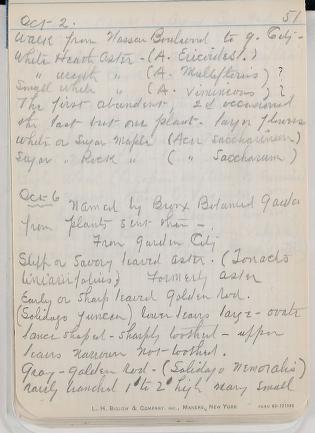 Oct- 2. 51
Walk from Nassau Boulevard to G. City-
White Heath Aster - (A. Ericoides.)
" wreath " (A. Multiflorus) ?
Small White " (A. Vimineus) ?
The first abundant, 2d occasional
the last but one plant - large flowers
White or Sugar Maple (Acer Saccharinum)
Sugar " Rock " ( " Saccharum)
Oct- 6
Named by Bronx Botanical Garden
from plants sent them -
From Garden City
Stiff or Savory leaved aster. (Ionactis
linariifolius) Formerly Aster
Early or Sharp leaved Golden rod.
(Solidago Juncea) lower leaves large - ovate
lance shaped - sharply toothed - upper
leaves narrow not toothed.
Gray - golden rod - (Solidago Nemoralis)
rarely branched 1° to 2° high many small
L. H. BIGLOW & COMPANY, INC., MAKERS, NEW YORK